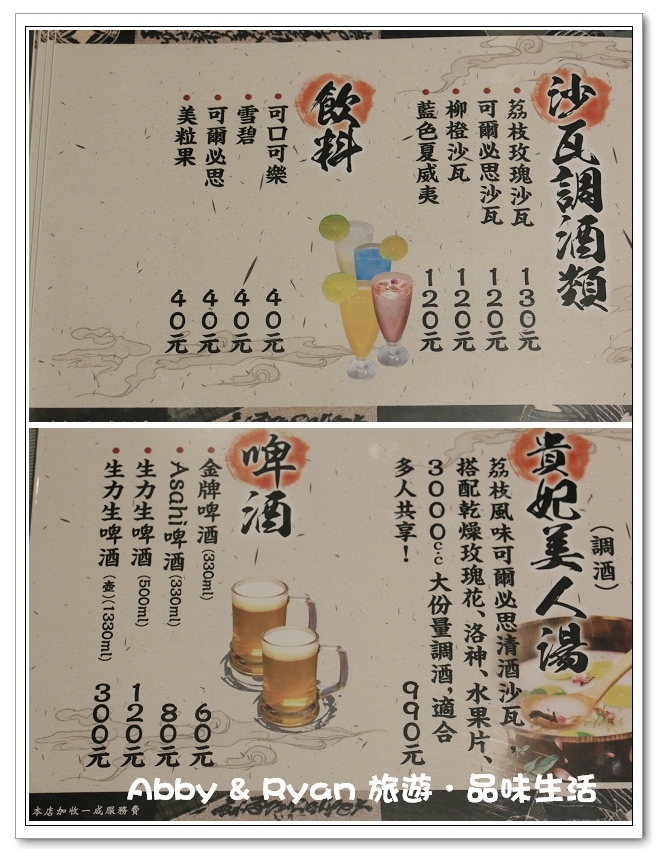 沙瓦調酒類
荔枝玫瑰沙瓦 130元
可爾必思沙瓦 120元
柳橙沙瓦 120元
藍色夏威夷 120元
飲料
可口可樂 40元
雪碧 40元
可爾必思 40元
美粒果 40元
貴妃美人湯
(調酒)
荔枝風味可爾必思清酒沙瓦，
搭配乾燥玫瑰花、洛神、水果片、
3000c.c大份量調酒，適合
多人共享！ 990元
啤酒
金牌啤酒(330ml) 60元
Asahi啤酒(330ml) 80元
生力生啤酒(500ml) 120元
生力生啤酒(壺)(1330ml) 300元
Abby & Ryan 旅遊·品味生活
本店加收一成服務費